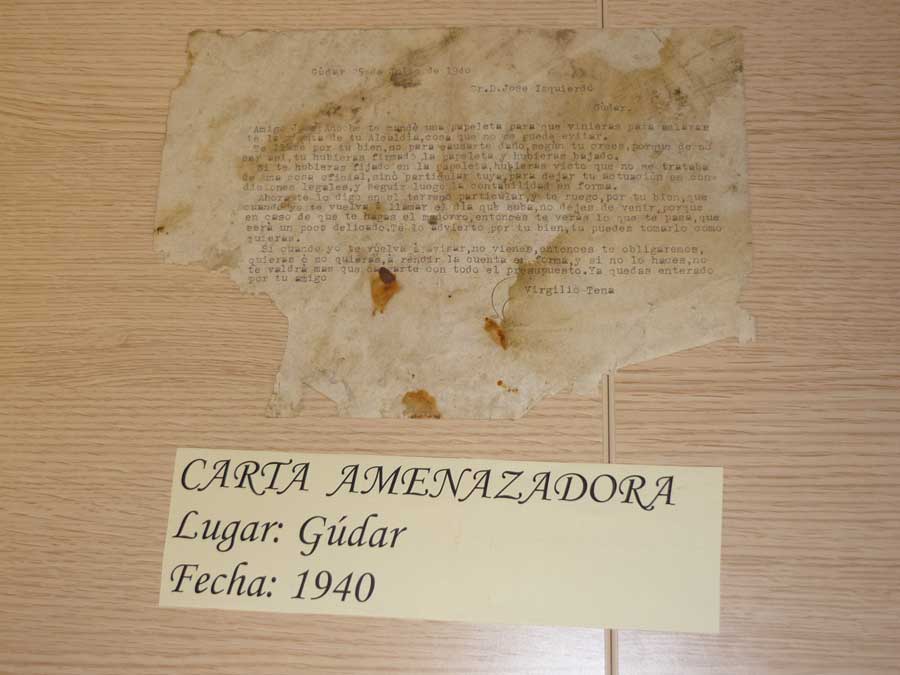 Gúdar 25 de Julio de 1940
Sr.D.Jose Izquierdo
Gúdar.
Amigo Jose:Anoche te mandé una papeleta para que vinieras para aclarar
la cuenta de tu Alcaldía,cosa que no se puede evitar.
Te llamé por tu bien,no para causarte daño,según tu crees,porque de no
ser así,tu hubieras firmado la papeleta y hubieras bajado.
Si te hubieras fijado en la papeleta,hubieras visto que no se trataba
de una cosa oficial,sinó particular tuya,para dejar tu actuación en con-
diciones legales,y seguir luego la contabilidad en forma.
Ahora te lo digo en el terreno particular,y te ruego,por tu bien,que
cuando yo te vuelva á llamar el día que suba,no dejes de venir,porque
en caso de que te hagas el modorro,entonces te verás lo que te pasa,que
será un poco delicado.Te lo advierto por tu bien,tu puedes tomarlo como
quieras.
Si cuando yo te vuelva á avisar,no vienes,entonces te obligaremos,
quieras ó no quieras,á rendir la cuenta en forma,y si no lo haces,no
te valdrá mas que con todo el presupuesto.Ya quedas enterado
por tu amigo
Virgilio Tena
CARTA AMENAZADORA
Lugar: Gúdar
Fecha: 1940